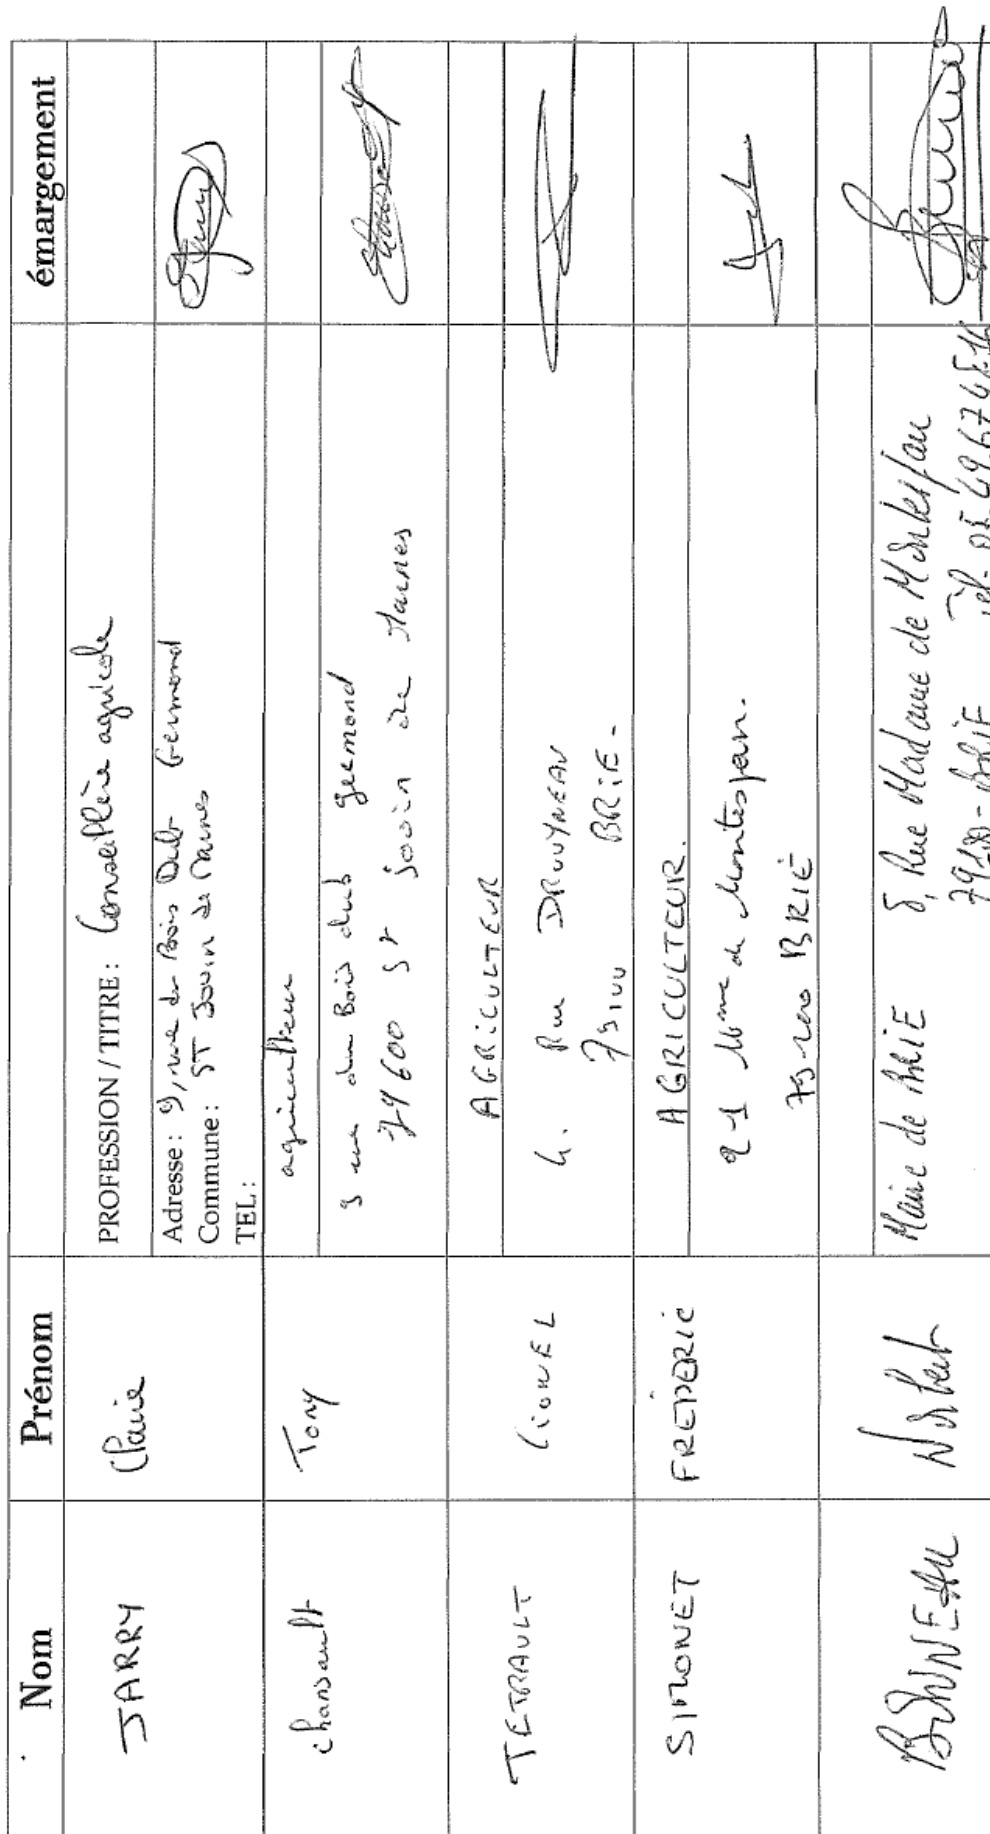 Nom Prénom émargement
JARRY Claire
PROFESSION / TITRE : Conseillère agricole
Adresse : 9, rue du Bois Dub Germond
Commune : ST Jouin de Marnes
TEL :
chansault Tony
agriculteur
9 rue du Bois dub germond
79600 St jouin de Marnes
TETRAULT LIONEL
AGRICULTEUR
4. Rue DRUYNEAU
79100 BRIE-
SIMONET FREDERIC
AGRICULTEUR.
21 Mme de Montespan.
BRIE
BONNEAU Norbert
Maire de BRIE 8, Rue Madame de Montespan
BRIE Tél-